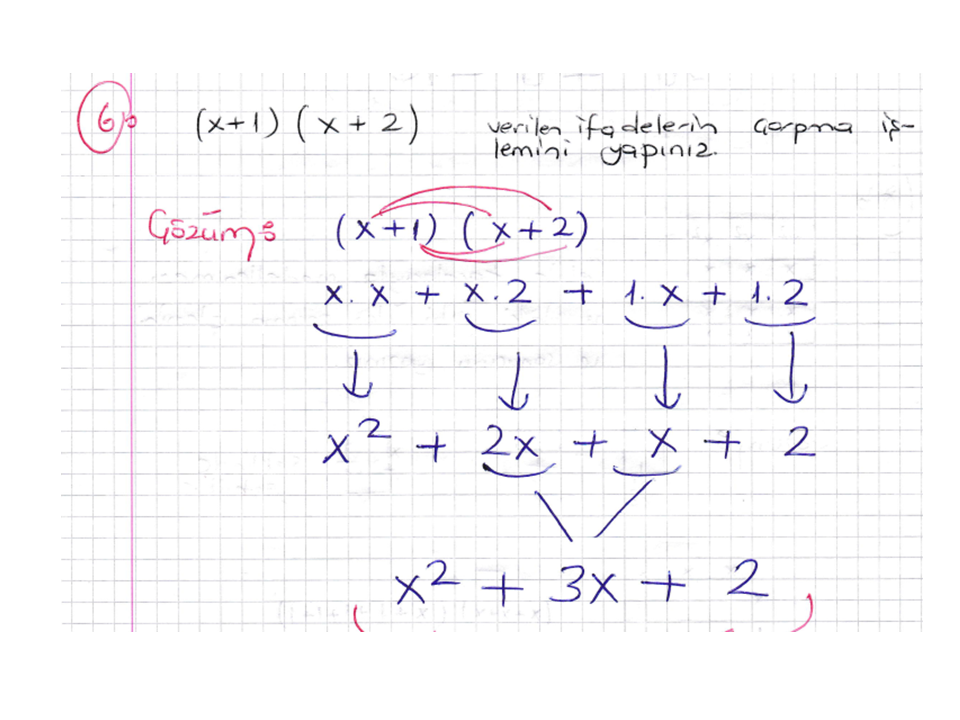 6) (x+1) (x+2) verilen ifadelerin çarpma iş-
lemini yapınız.
Çözüm: (x+1) (x+2)
x.x + x.2 + 1.x + 1.2
x² + 2x + x + 2
x² + 3x + 2